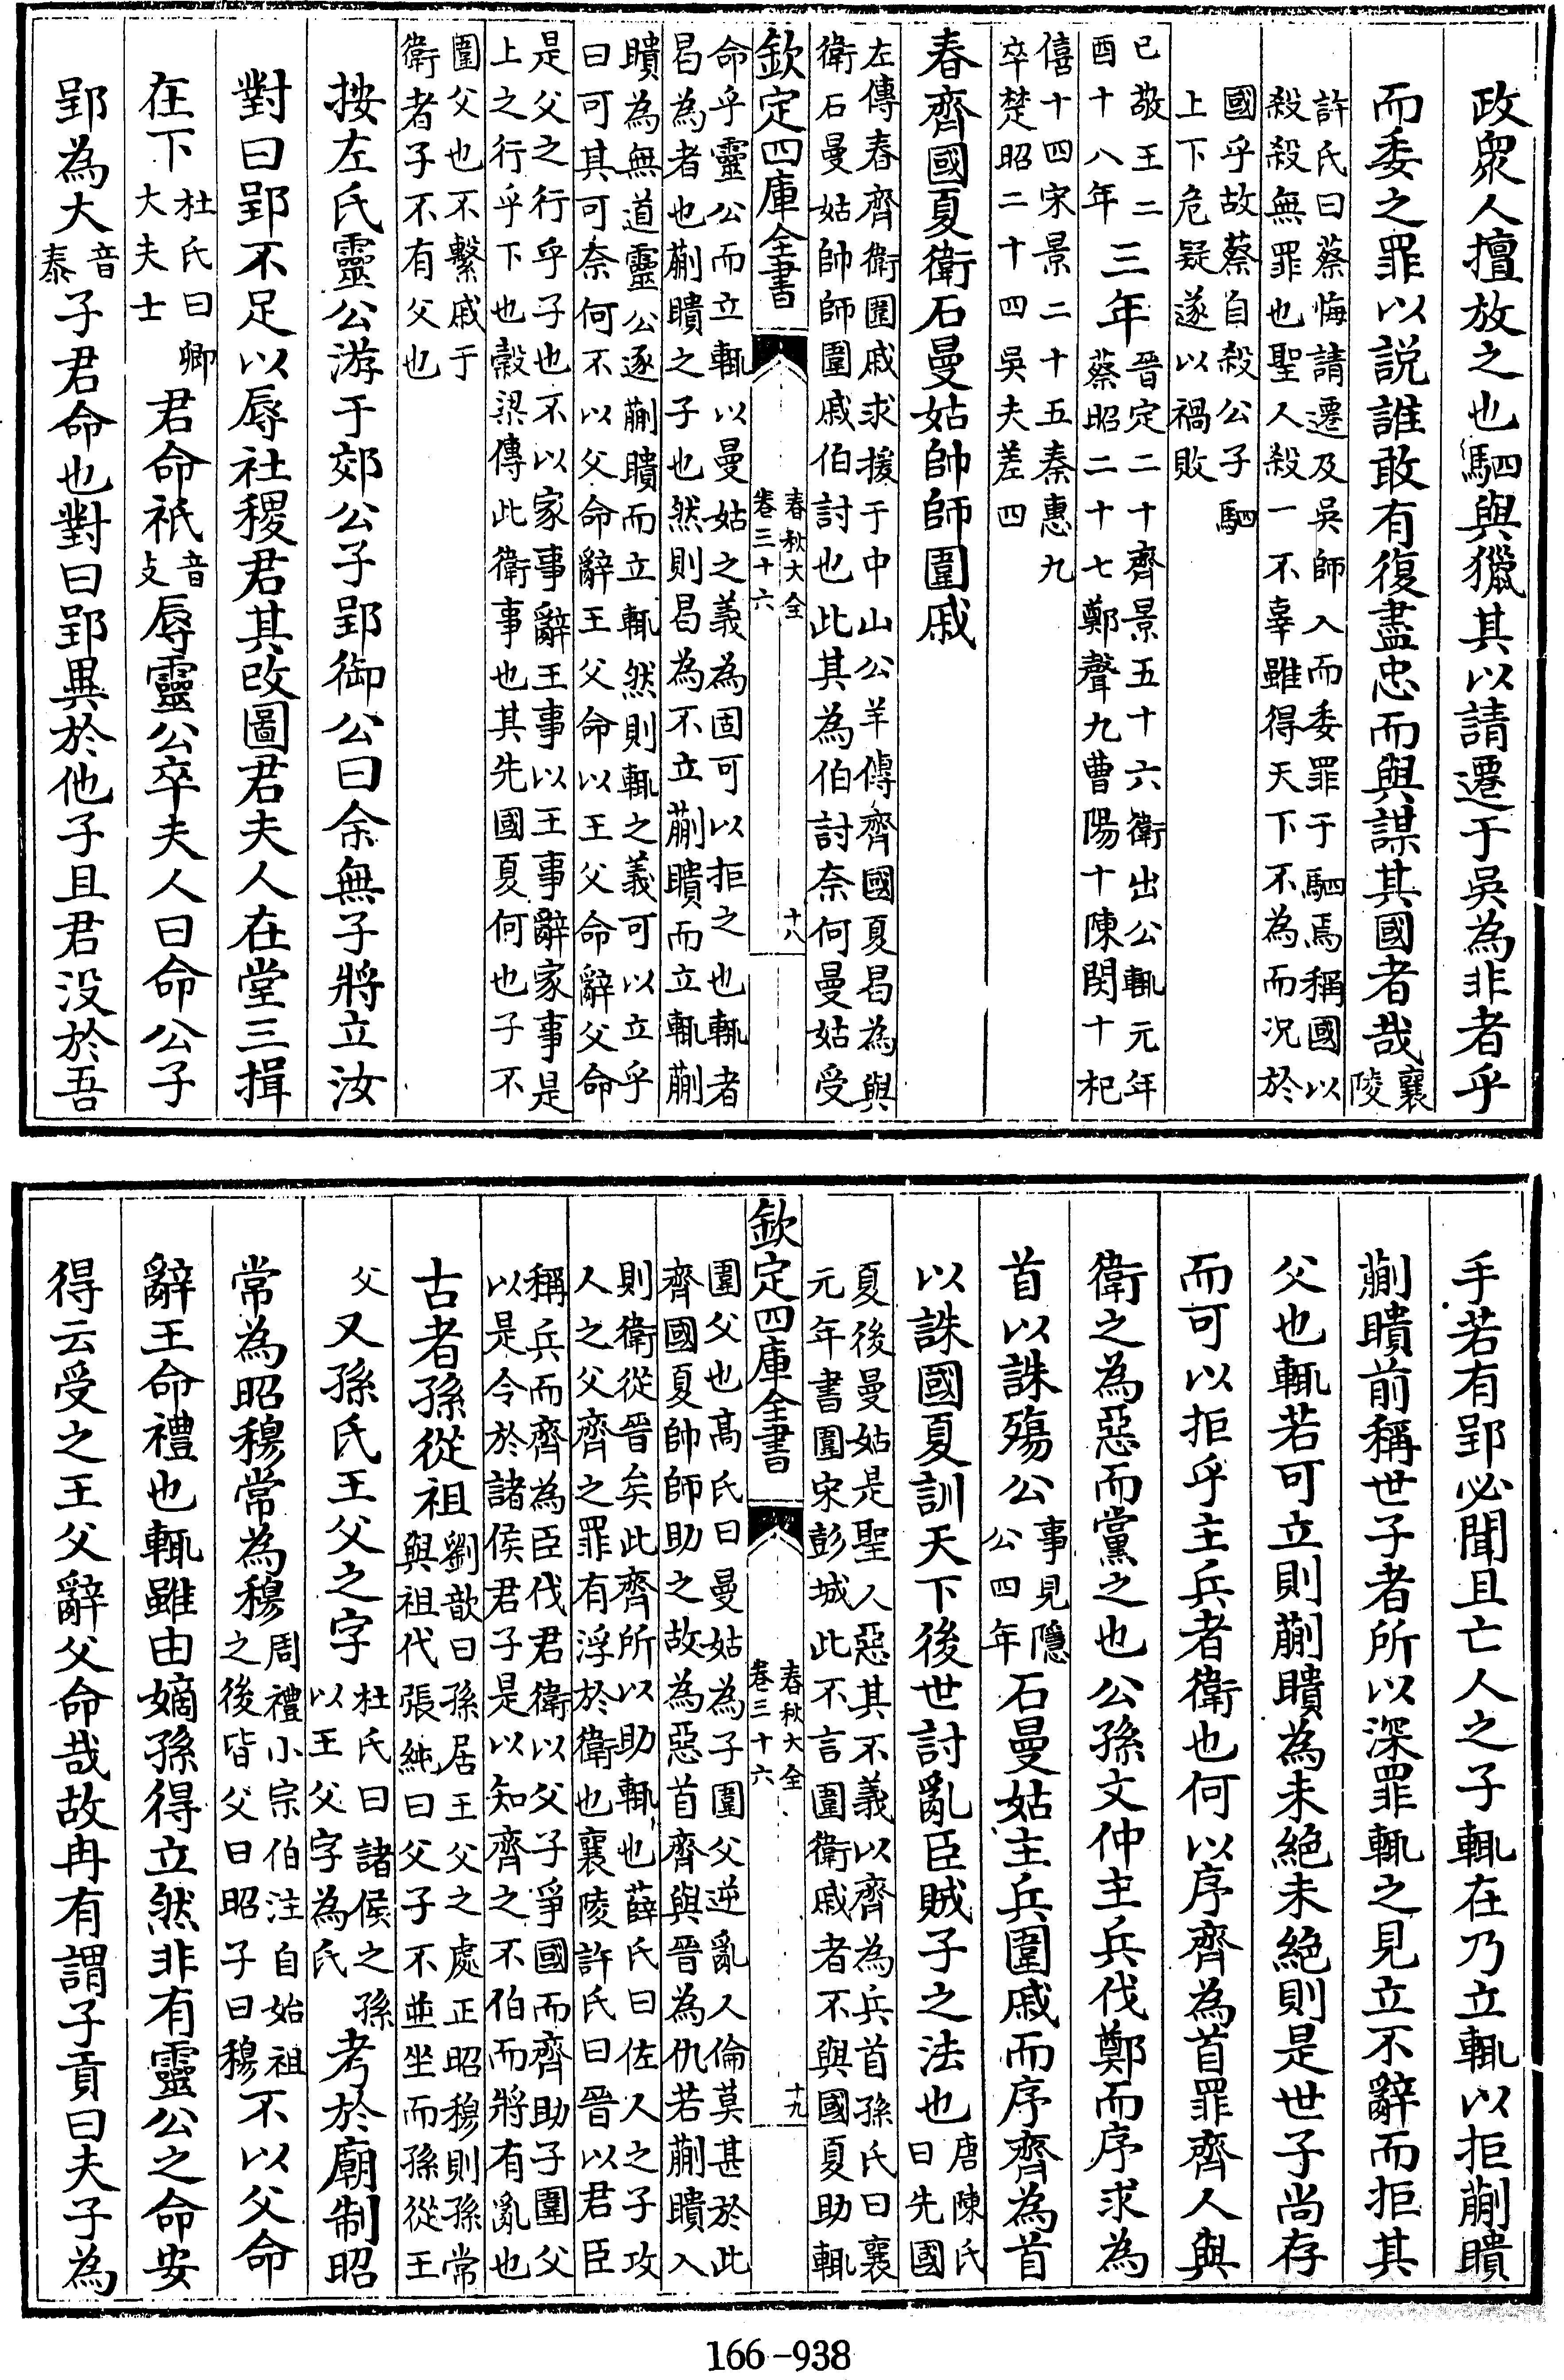 政眾人擅放之也駟與獵其以請遷于吳為非者乎
而委之罪以説誰敢有復盡忠而與謀其國者哉襄陵
許氏曰蔡悔請遷及吳師入而委罪于駟焉稱國以
殺殺無罪也聖人殺一不辜雖得天下不為而况於
國乎故蔡自殺公子駟
上下危疑遂以禍敗
已敬王二
酉十八年
三年
晉定二十齊景五十六衛出公輒元年
蔡昭二十七鄭聲九曹陽十陳閔十杞
僖十四宋景二十五秦惠九
卒楚昭二十四吳夫差四
春齊國夏衛石曼姑帥師圍戚
左傳春齊衛圍戚求援于中山公羊傳齊國夏曷為與
衛石曼姑帥師圍戚伯討也此其為伯討奈何曼姑受
欽定四庫全書
春秋大全
卷三十六
十八
命乎靈公而立輒以曼姑之義為固可以拒之也輒者
曷為者也蒯聵之子也然則曷為不立蒯聵而立輒蒯
聵為無道靈公逐蒯聵而立輒然則輒之義可以立乎
曰可其可奈何不以父命辭王父命以王父命辭父命
是父之行乎子也不以家事辭王事以王事辭家事是
上之行乎下也穀梁傳此衛事也其先國夏何也子不
圍父也不繫戚于
衛者子不有父也
按左氏靈公游于郊公子郢御公曰余無子將立汝
對曰郢不足以辱社稷君其改圖君夫人在堂三揖
在下杜氏曰卿大夫士君命祇音支辱靈公卒夫人曰命公子
郢為大音泰子君命也對曰郢異於他子且君没於吾
手若有郢必聞且亡人之子輒在乃立輒以拒蒯聵
蒯聵前稱世子者所以深罪輒之見立不辭而拒其
父也輒若可立則蒯聵為未絶未絶則是世子尚存
而可以拒乎主兵者衛也何以序齊為首罪齊人與
衛之為惡而黨之也公孫文仲主兵伐鄭而序求為
首以誅殤公事見隱公四年石曼姑主兵圍戚而序齊為首
以誅國夏訓天下後世討亂臣賊子之法也唐陳氏曰先國
夏後曼姑是聖人惡其不義以齊為兵首孫氏曰襄
元年書圍宋彭城此不言圍衛戚者不與國夏助輒
欽定四庫全書
春秋大全
卷三十六
十九
圍父也髙氏曰曼姑為子圍父逆亂人倫莫甚於此
齊國夏帥師助之故為惡首齊與晉為仇若蒯聵入
則衛從晉矣此齊所以助輒也薛氏曰佐人之子攻
人之父齊之罪有浮於衛也襄陵許氏曰晉以君臣
稱兵而齊為臣伐君衛以父子爭國而齊助子圍父
以是令於諸侯君子是以知齊之不伯而將有亂也
古者孫從祖劉歆曰孫居王父之處正昭穆則孫常與祖代張純曰父子不並坐而孫從王
父又孫氏王父之字杜氏曰諸侯之孫以王父字為氏考於廟制昭
常為昭穆常為穆周禮小宗伯注自始祖之後皆父曰昭子曰穆不以父命
辭王命禮也輒雖由嫡孫得立然非有靈公之命安
得云受之王父辭父命哉故冉有謂子貢曰夫子為
166-938